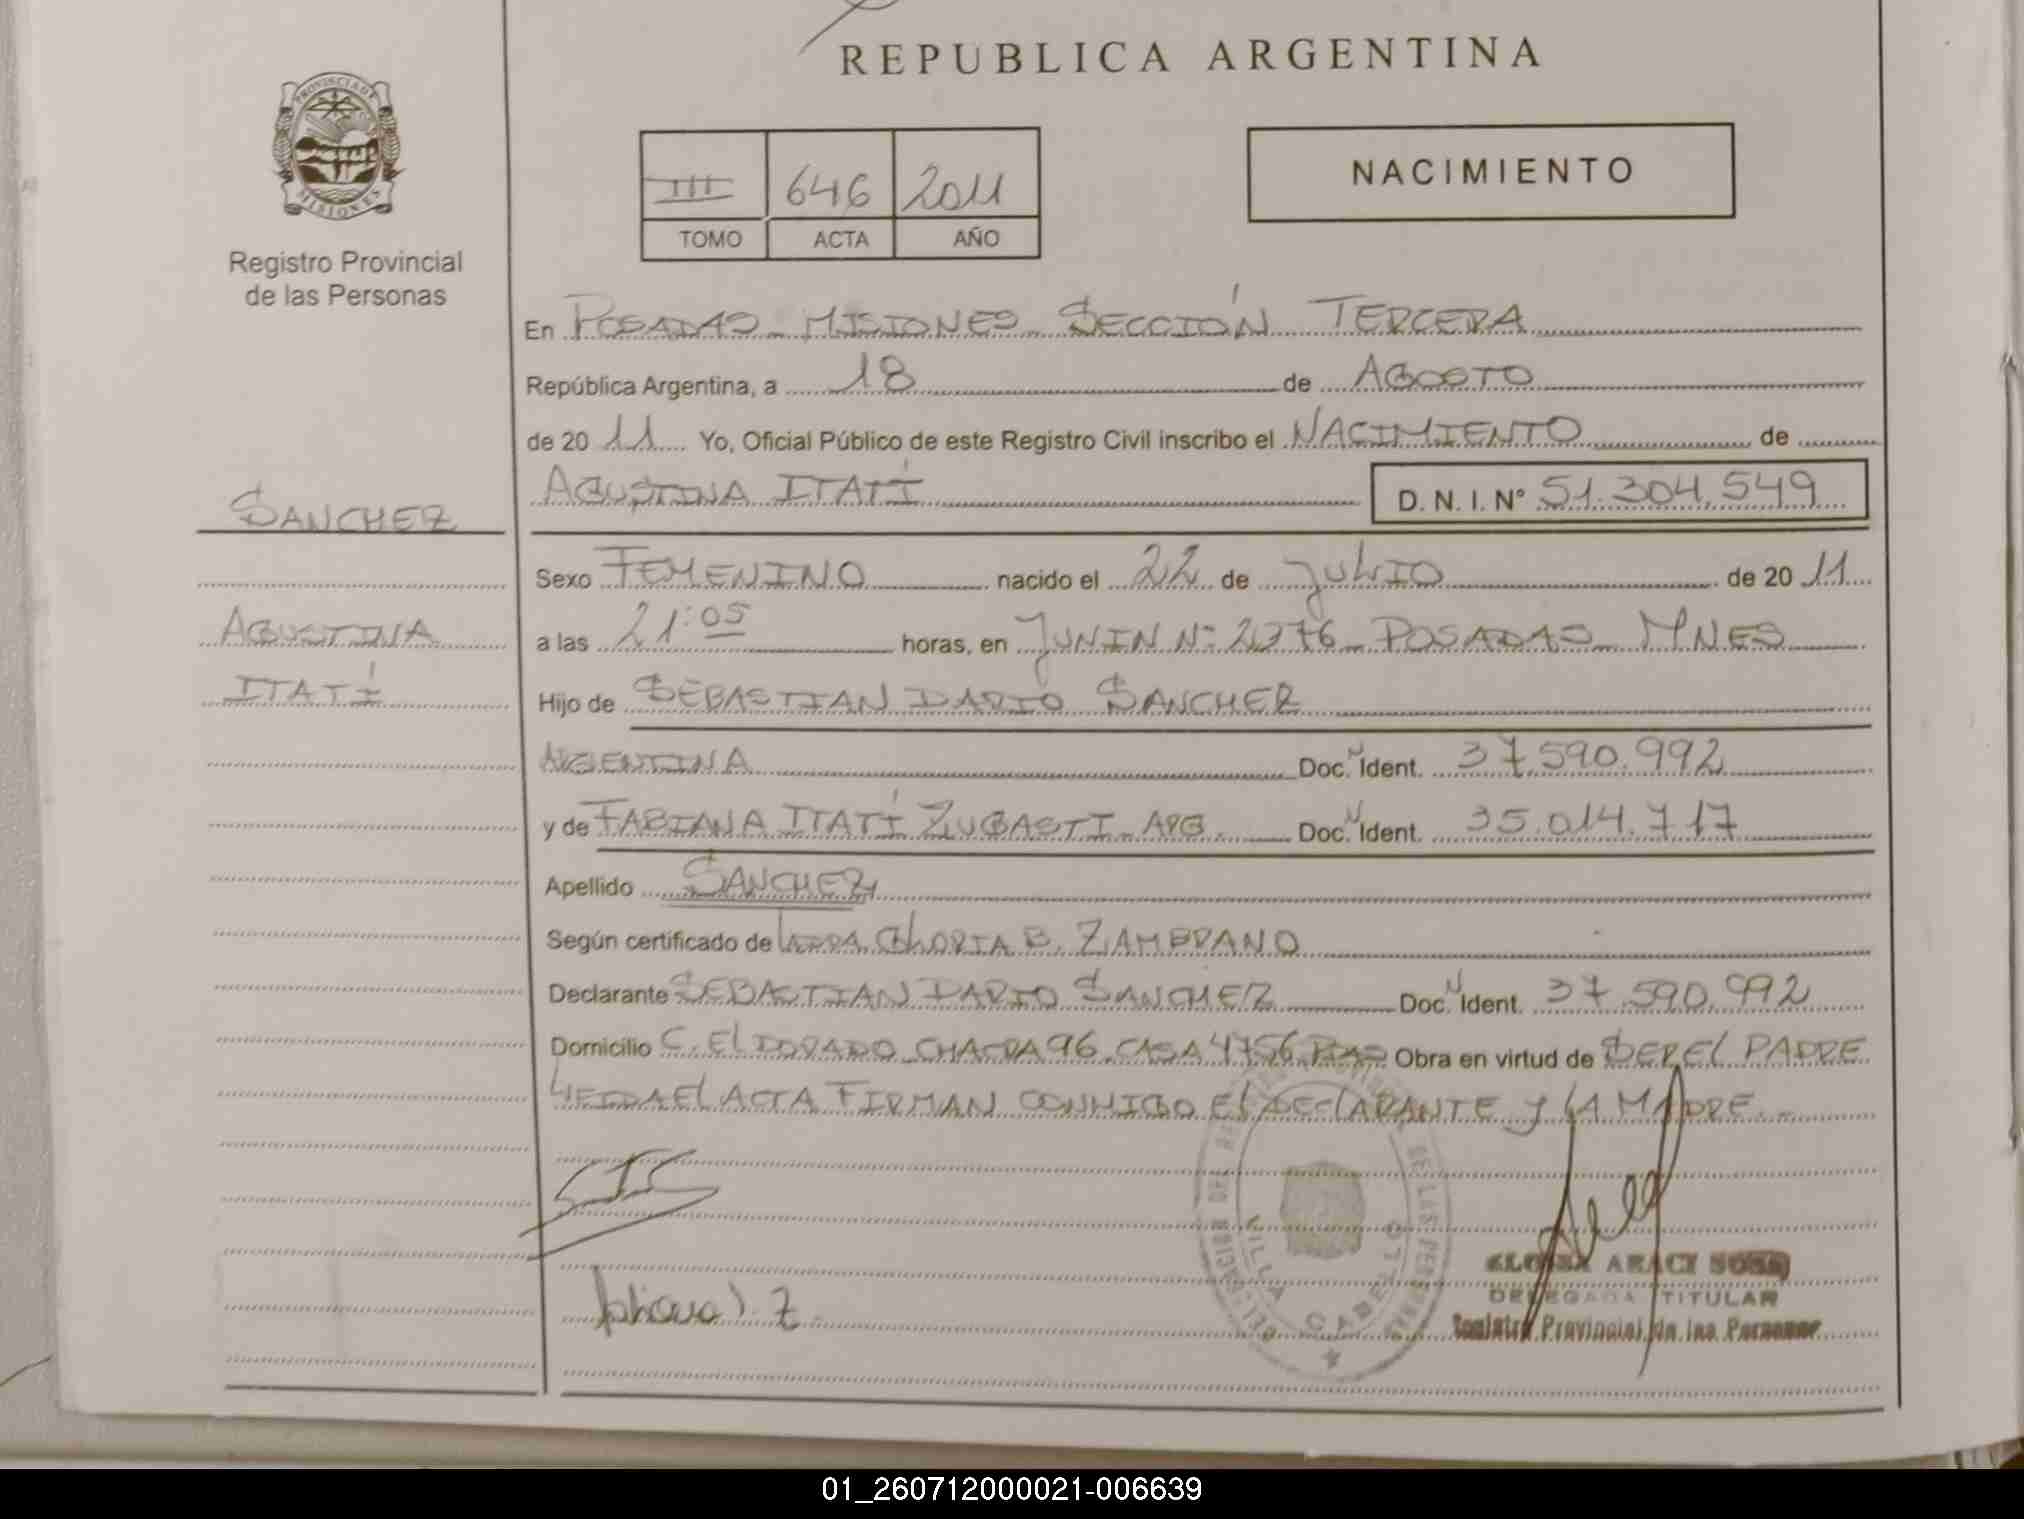 REPUBLICA ARGENTINA
PROVINCIA DE
MISIONES
Registro Provincial
de las Personas
III 646 2011
TOMO ACTA AÑO
NACIMIENTO
En POSADAS - MISIONES - SECCIÓN TERCERA
República Argentina, a 18 de AGOSTO
de 20 11 Yo, Oficial Público de este Registro Civil inscribo el NACIMIENTO de
AGUSTINA ITATÍ D. N. I. N° 51.304.549
SANCHEZ
AGUSTINA
ITATÍ
Sexo FEMENINO nacido el 22 de JULIO de 20 11
a las 21:05 horas, en JUNIN N° 2376 - POSADAS - MNES
Hijo de SEBASTIAN DARIO SANCHEZ
ARGENTINA Doc. Ident. 37.590.992
y de FABIANA ITATÍ ZUBASTI - ARG. Doc. Ident. 35.014.717
Apellido SANCHEZ
Según certificado de GLORIA B. ZAMBRANO
Declarante SEBASTIAN DARIO SANCHEZ Doc. Ident. 37.590.992
Domicilio C. ELDORADO CHACRA 96 CASA 4756 Obra en virtud de SER EL PADRE
LEIDA EL ACTA FIRMAN CONMIGO EL DECLARANTE Y LA MADRE.-
VILLA CABELLO
DE LAS PERSONAS
Fabiana I. Z.
ARACI SOSA
DELEGADA TITULAR
Registro Provincial de las Personas
01_260712000021-006639